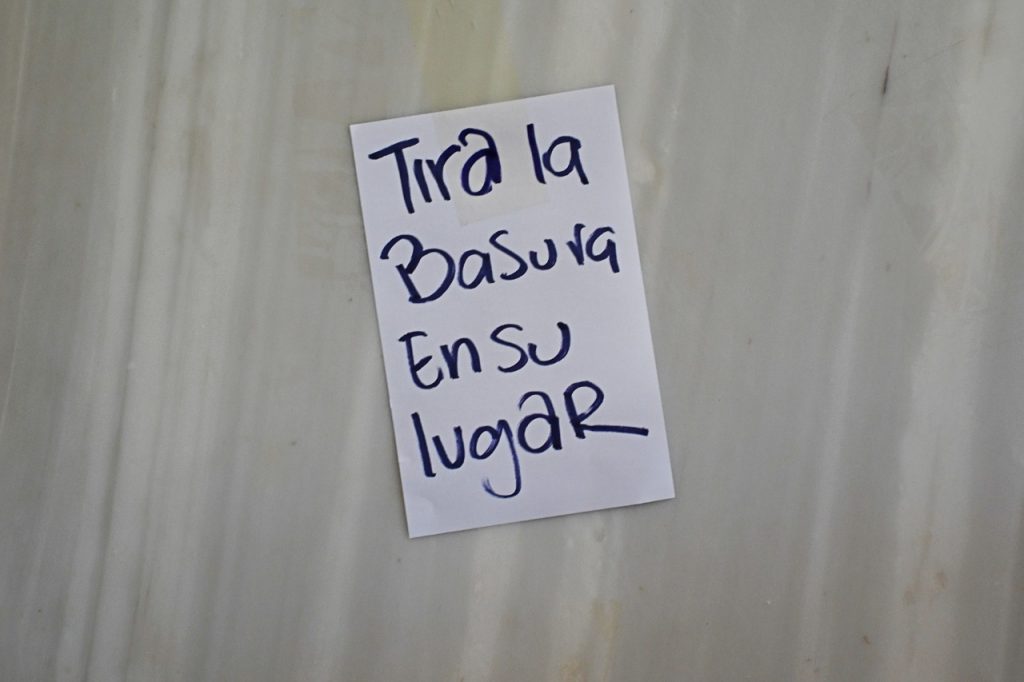 Tira la
Basura
En su
lugaR